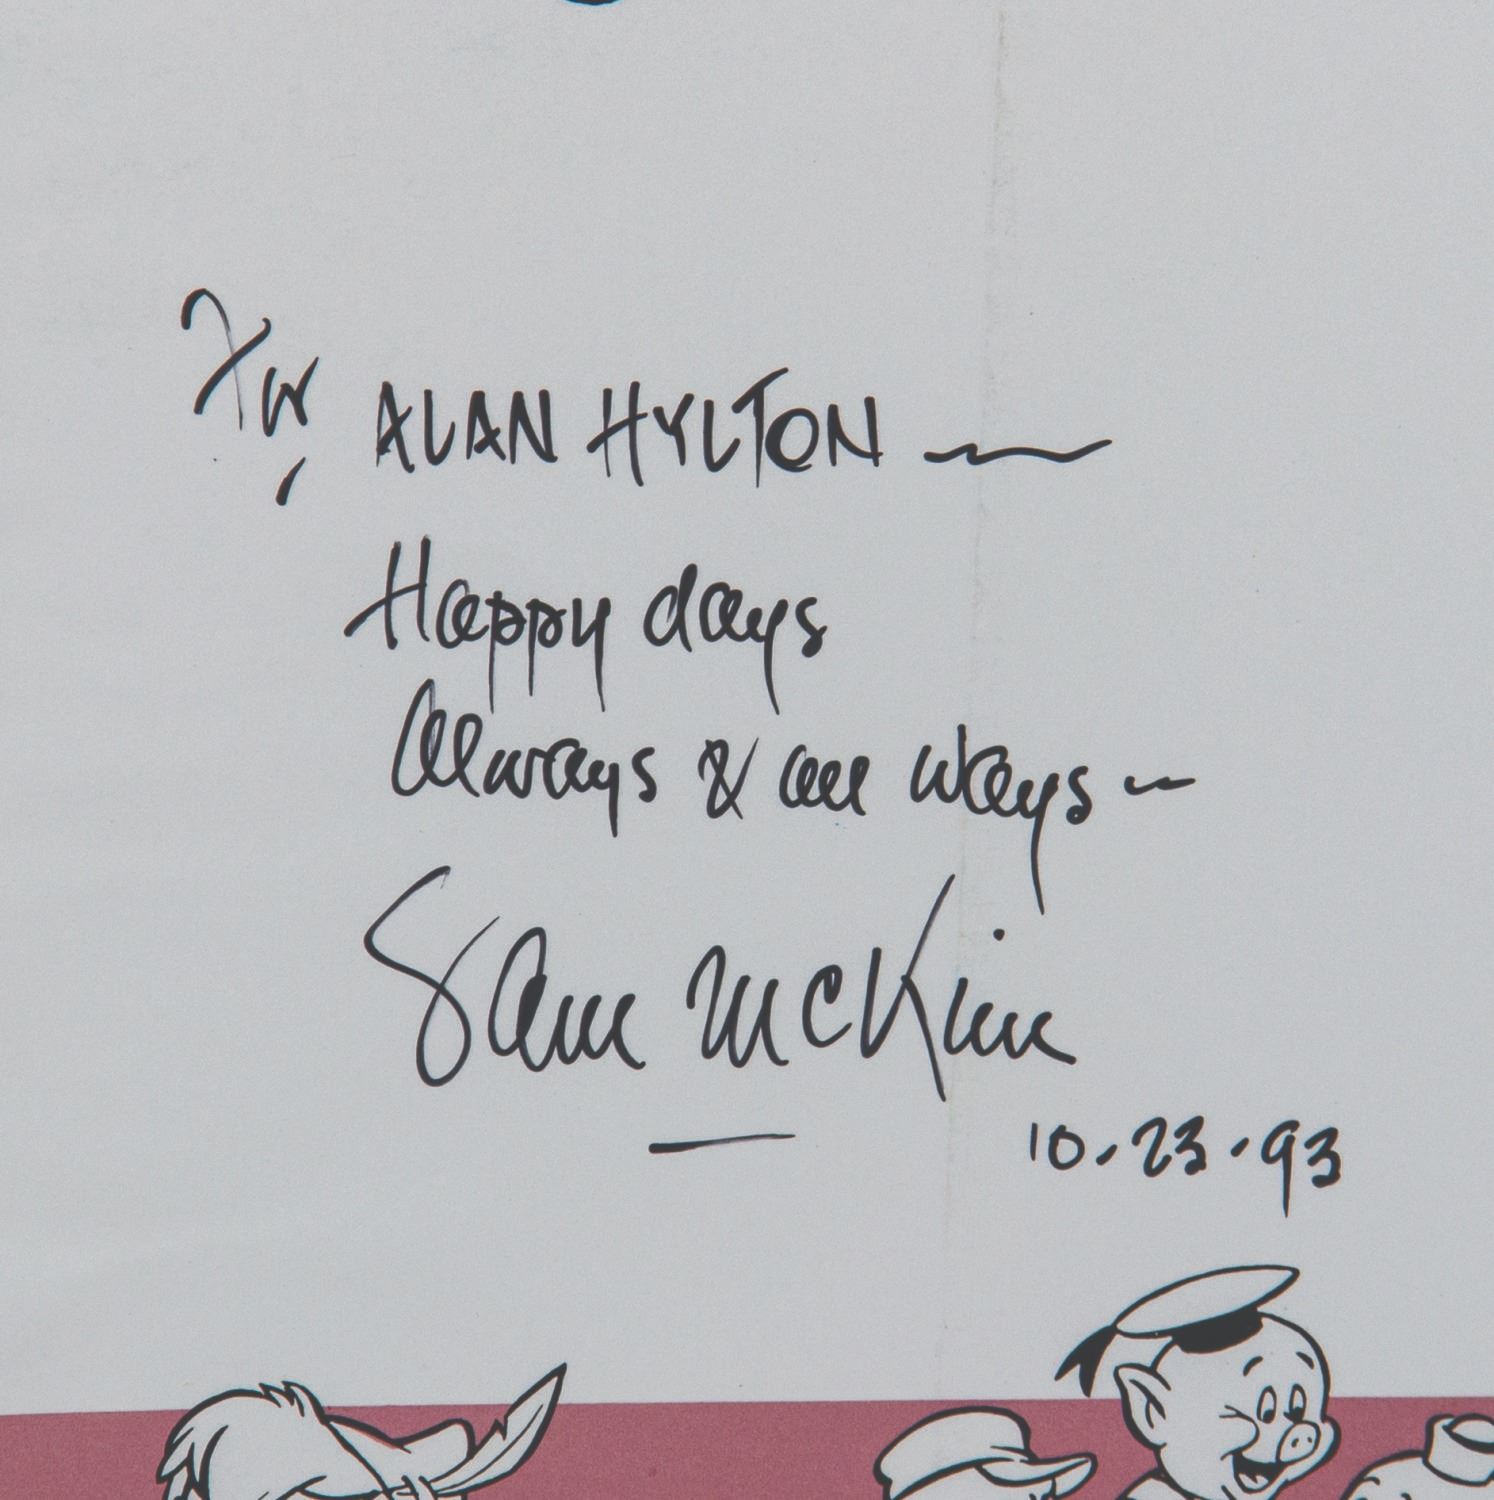 For ALAN HYLTON —
Happy days
Always & all ways —
Sam McKim
10.23.93